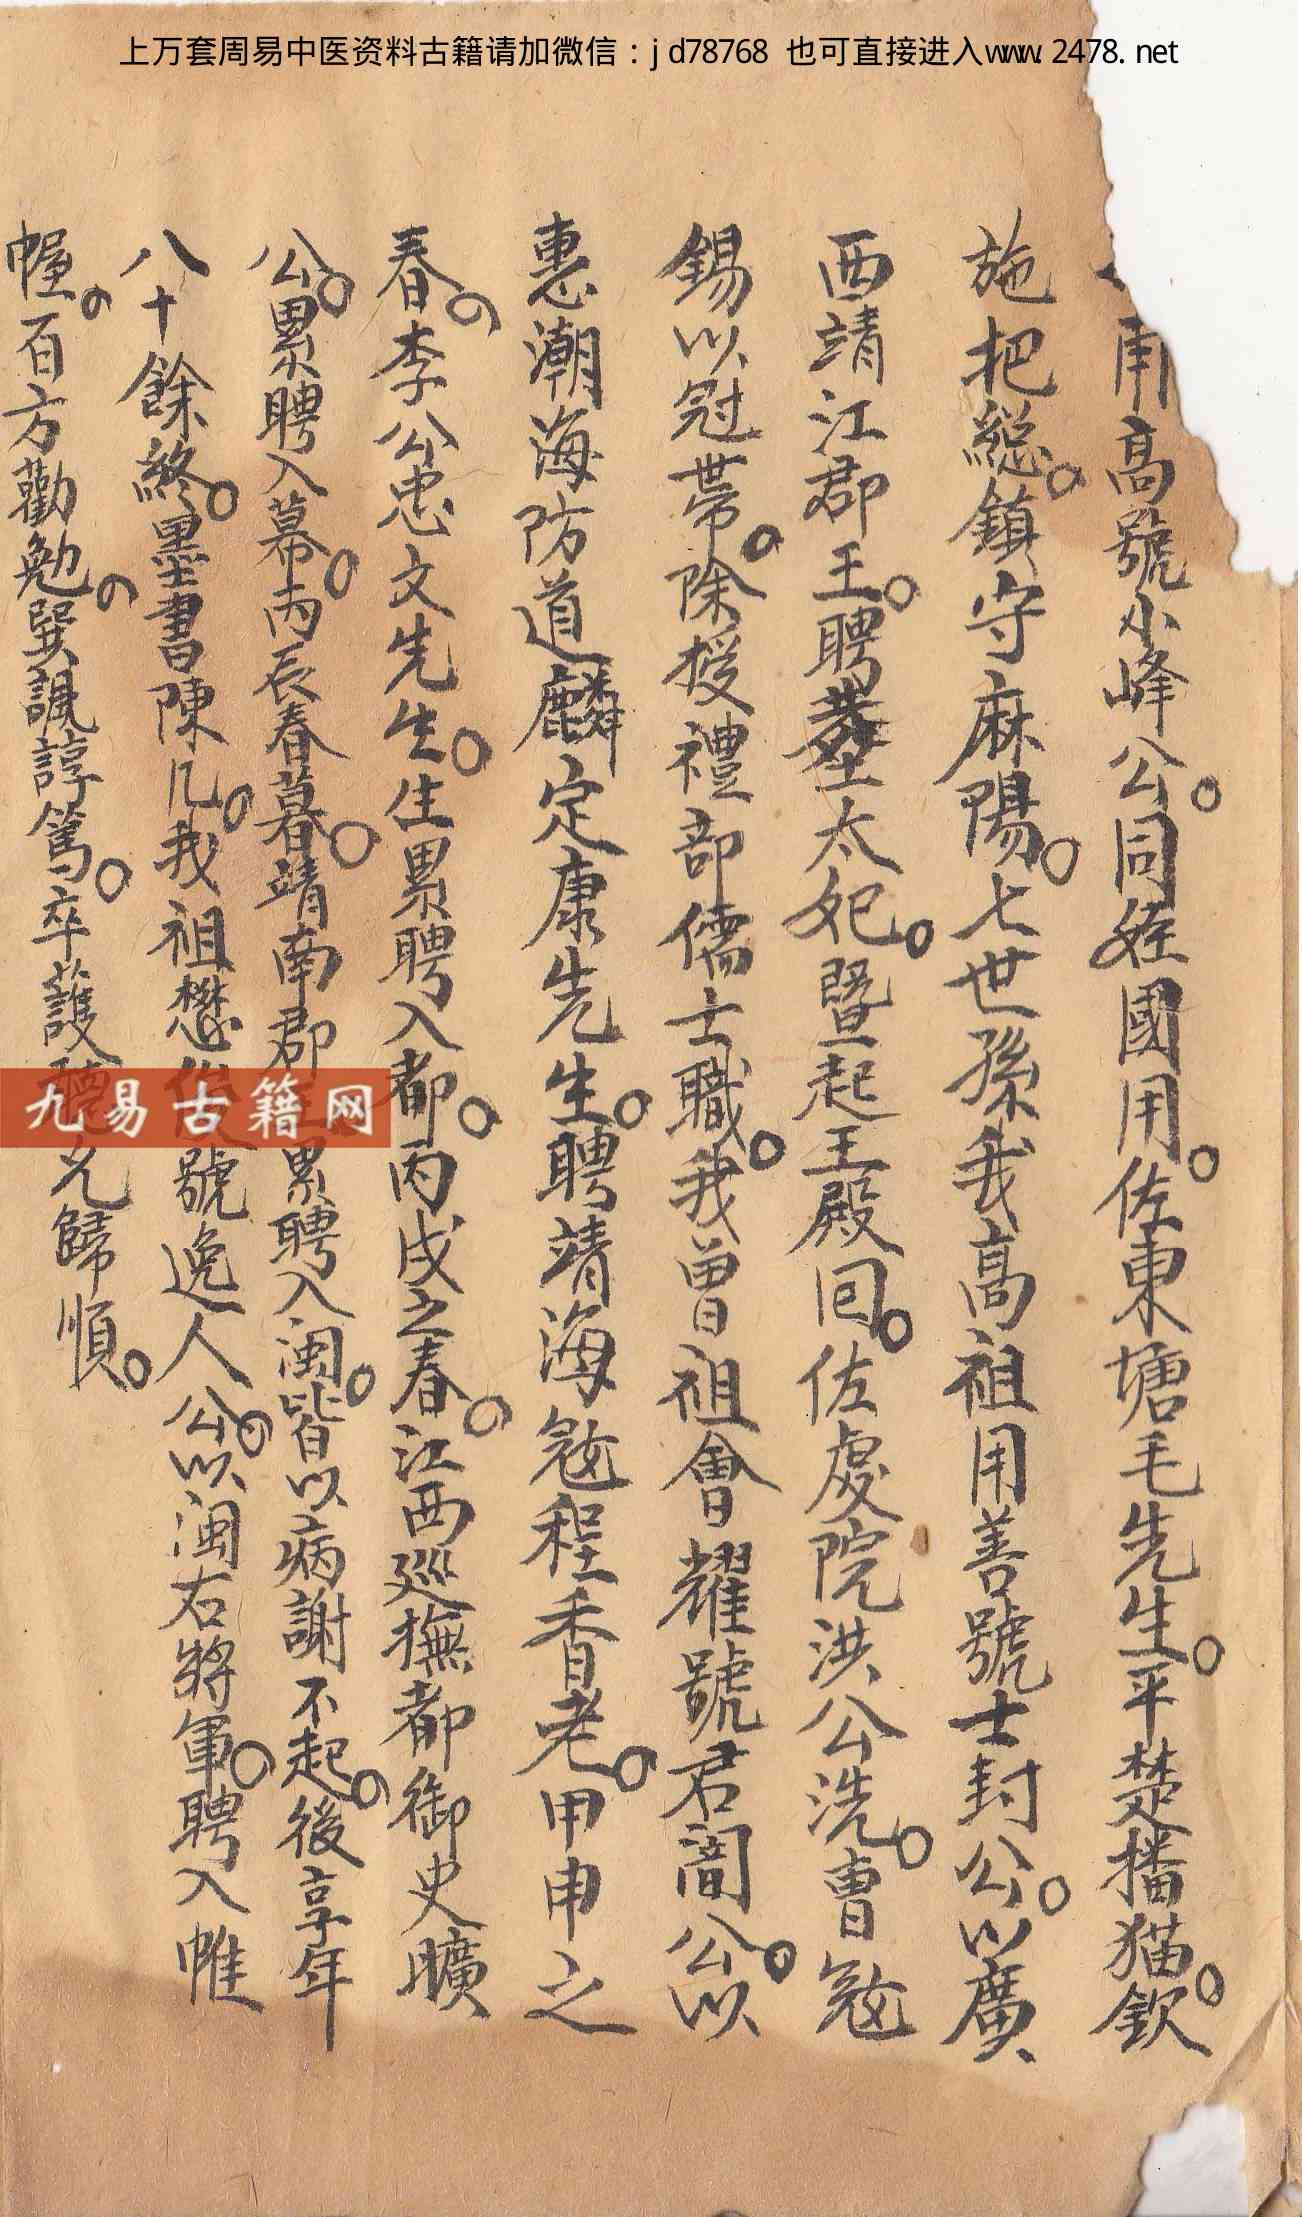 上万套周易中医资料古籍请加微信：jd78768 也可直接进入www.2478.net
南高號小峰公。同姪國用。佐東塘毛先生。平楚播猫。欽
施把總。鎮守麻陽。七世孫我高祖用善號士封公。以廣
西靖江郡王。聘塟太妃。暨起王殿回。佐處院洪公洗。曹
錫以冠帶。除授禮部儒士職。我曾祖會耀號君闇公。以
惠潮海防道麟定康先生。聘靖海程香老。甲申之
春。李公忠文先生。生累聘入都。丙戌之春。江西巡撫都御史曠
公。累聘入幕。丙辰春暮。靖南郡累聘入闽。皆以病謝不起。後享年
八十餘終。墨書陳几。我祖懋號逸人公。以闽右將軍。聘入帷
幄。百方勸勉。巽諷諄篤。卒護允歸順。
九易古籍网